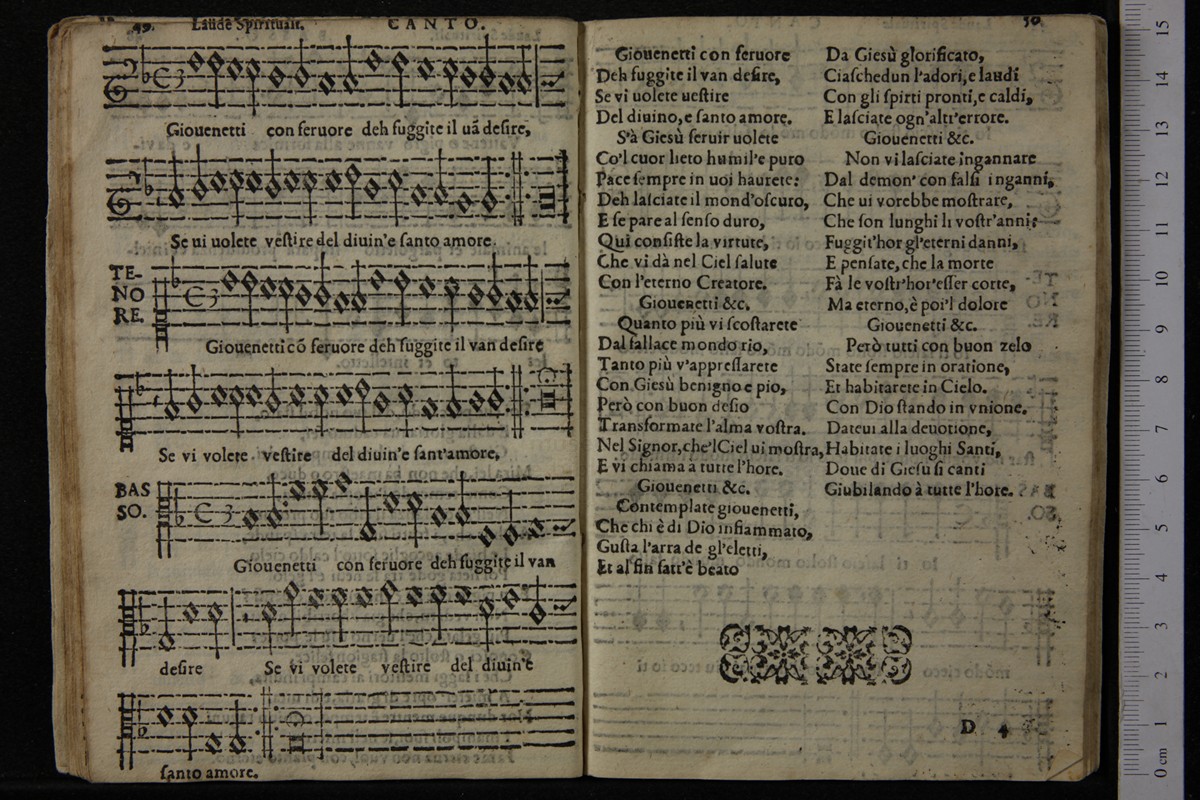 49. Laude Spirituali. CANTO.
Giouenetti con feruore deh fuggite il uã desire,
Se ui uolete vestire del diuin'e santo amore.
TE-
NO
RE.
Giouenetti cõ feruore deh fuggite il van desire
Se vi volete vestire del diuin'e sant'amore,
BAS
SO.
Giouenetti con feruore deh fuggite il van
desire Se vi volete vestire del diuin'e
santo amore.
50.
Giouenetti con feruore
Deh fuggite il van desire,
Se vi uolete uestire
Del diuino, e santo amore.
S'à Giesù seruir uolete
Co'l cuor lieto humil'e puro
Pace sempre in uoi haurete:
Deh lasciate il mond'oscuro,
E se pare al senso duro,
Qui consiste la virtute,
Che vi dà nel Ciel salute
Con l'eterno Creatore.
Giouenetti &c.
Quanto più vi scostarete
Dal fallace mondo rio,
Tanto più v'appressarete
Con Giesù benigno e pio,
Però con buon desio
Transformate l'alma vostra.
Nel Signor, che'l Ciel ui mostra,
E vi chiama a tutte l'hore.
Giouenetti &c.
Contemplate giouenetti,
Che chi è di Dio infiammato,
Gusta l'arra de gl'eletti,
Et al fin fatt'è beato
Da Giesù glorificato,
Ciaschedun l'adori, e laudi
Con gli spirti pronti, e caldi,
E lasciate ogn'altr'errore.
Giouenetti &c.
Non vi lasciate ingannare
Dal demon' con falsi inganni,
Che ui vorebbe mostrare,
Che son lunghi li vostr'anni:
Fuggit'hor gl'eterni danni,
E pensate, che la morte
Fà le vostr'hor'esser corte,
Ma eterno, è poi'l dolore
Giouenetti &c.
Però tutti con buon zelo
State sempre in oratione,
Et habitarete in Cielo.
Con Dio stando in vnione.
Dateui alla deuotione,
Habitate i luoghi Santi,
Doue di Giesu si canti
Giubilando à tutte l'hore.
D 4